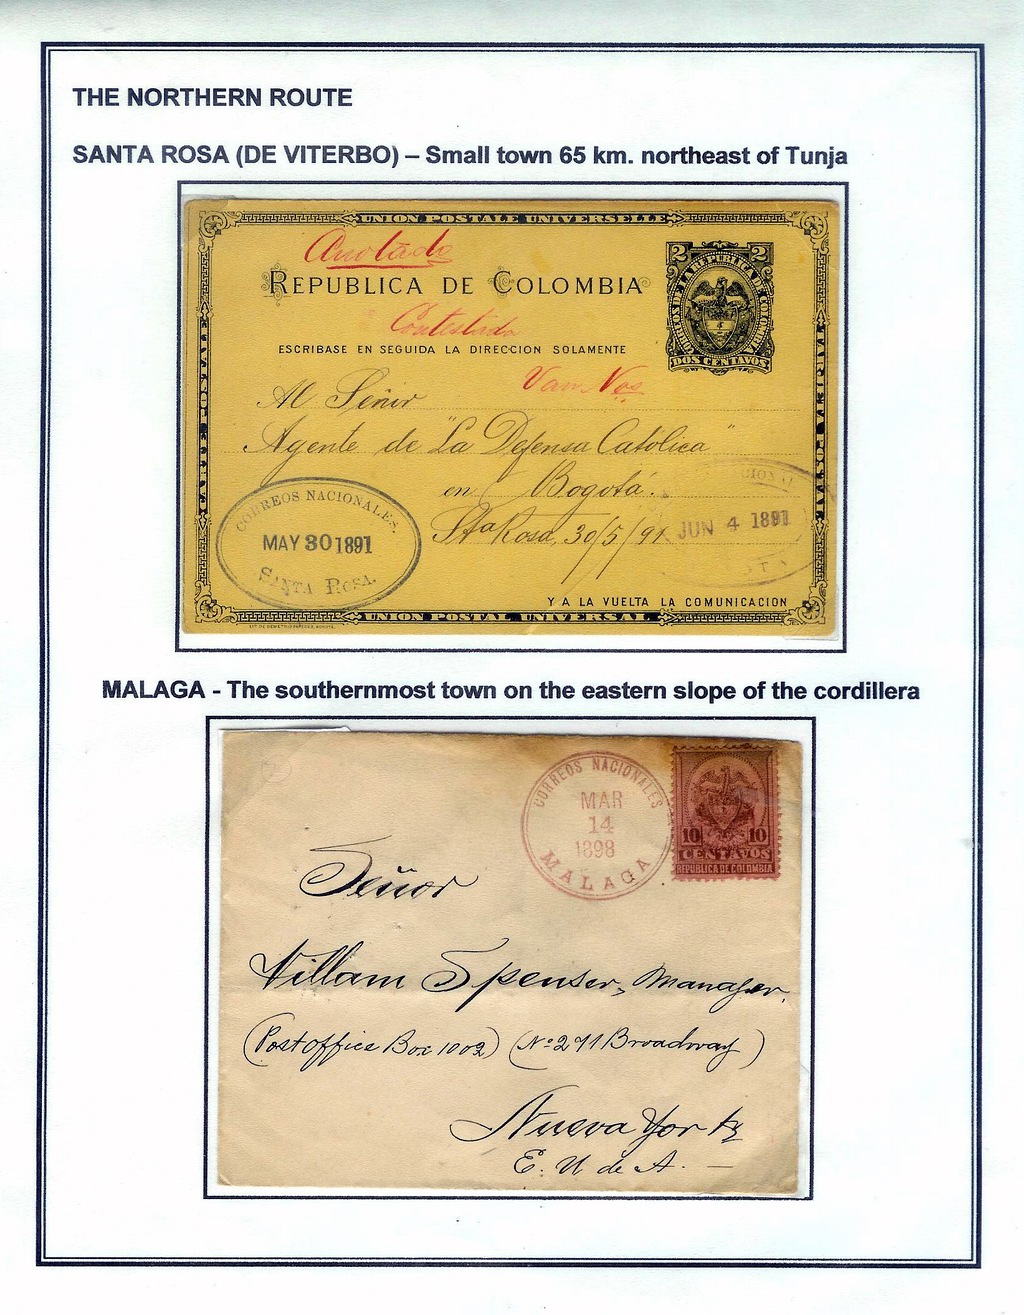 THE NORTHERN ROUTE
SANTA ROSA (DE VITERBO) – Small town 65 km. northeast of Tunja
UNION POSTALE UNIVERSELLE
Anotado
REPUBLICA DE COLOMBIA
2 2
CORREOS DE LA REPUBLICA DE COLOMBIA
DOS CENTAVOS
Contestada
ESCRIBASE EN SEGUIDA LA DIRECCION SOLAMENTE
Van Nos
Al Señor
Agente de "La Defensa Católica"
en Bogotá.
Sta Rosa, 30/5/91
CORREOS NACIONALES.
MAY 30 1891
SANTA ROSA
JUN 4 1891
Y A LA VUELTA LA COMUNICACION
UNION POSTAL UNIVERSAL
MALAGA - The southernmost town on the eastern slope of the cordillera
CORREOS NACIONALES
MAR
14
1898
MALAGA
10 10
CENTAVOS
REPUBLICA DE COLOMBIA
Señor
Villam Spenser, Manager.
(Postoffice Box 1002) (No 271 Broadway)
Nueva York
E. U de A. —